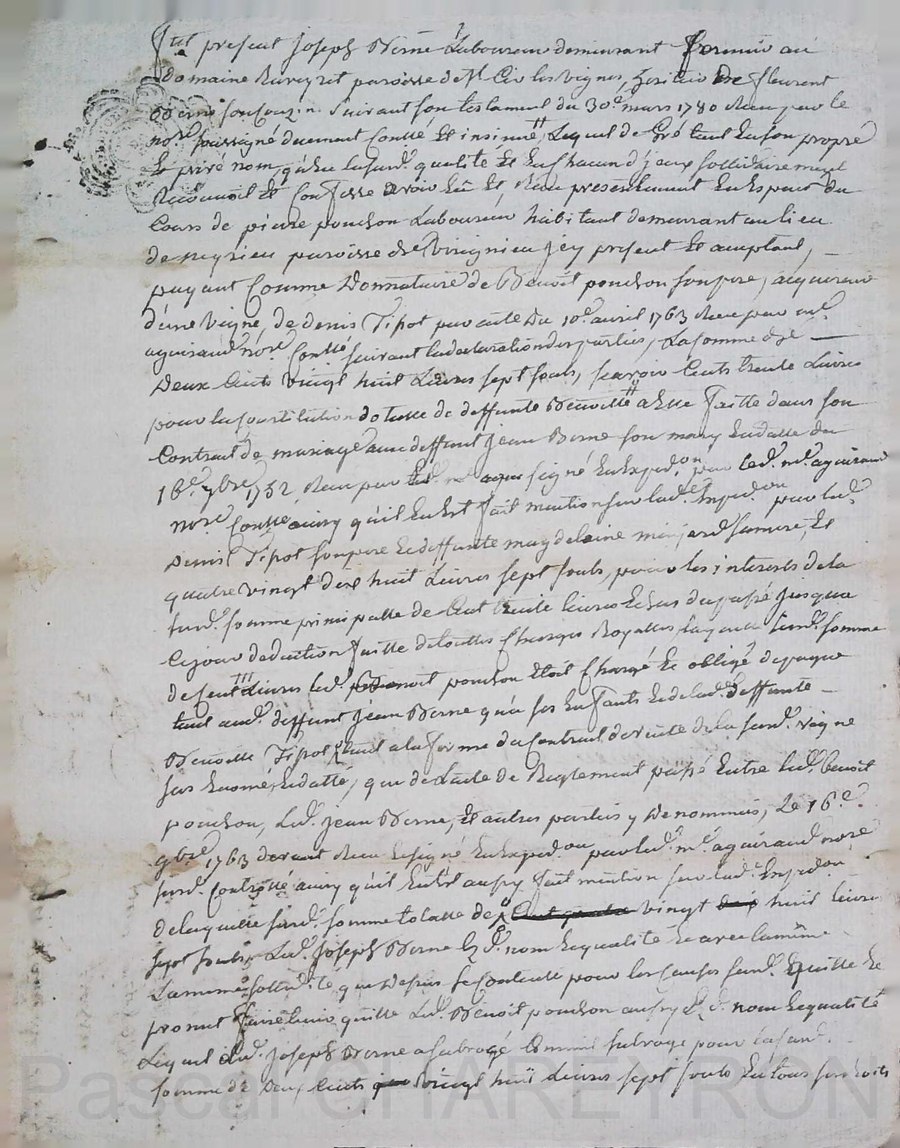 fut présent Joseph Berne Laboureur demeurant fermier au
domaine paroisse de les vignes, héritier de fleurent
Berne son Cousin Suivant son testament du 30e. mars 1780 Reçu par le
nore. soussigné duement Conllé Et insinué, Lequel de Gré tant En son propre
Et privé nom, qu'En lasusd. qualité Et En chacun d'jeux sollidairement
Reconnoit Et Confesse avoir Eu Et Reçu présentement En Espèces du
Cours de pierre ponchon Laboureur habitant demeurant au lieu
de paroisse de Virignieu jcy présent Et acceptant,
payant Comme Donnataire de Benoît ponchon son père, acquereur
d'une Vigne, de denis Tipot par acte du 10e. avril 1763 Reçu par me.
aguiraud nore. Conllé suivant la declaration des parties, La somme de
Deux Cents Vingt huit Livres sept sous, sçavoir Cents trente Livres
pour la constitution dotalle de deffunte Benoitte a Elle faitte dans son
Contrat de mariage avec deffunt Jean Berne son mary En datte du
16e. 7bre. 1752. Reçu par led. me signé En Expedon par led. me. aguiraud
nore. Conllé ainsy qu'il En Est fait mention sur lad. Expedon par led.
Denis Tipot son père Et deffunte magdelaine sa mère, Et
quatre vingt dix huit Livres sept sous, pour les interets de la
susd. somme principalle de Cent trente livres Echus du passé jusqua
Ce jour deduction faitte de touttes Charges Royalles, laquelle susd. somme
de Cent Livres led. Benoit ponchon Etoit Chargé Et obligé de payer
tant aud. deffunt Jean Berne qu'a ses Enfants Et de lad. deffunte
Benoitte Tipot, tant a la forme du Contrat de vente de la susd. vigne
sus Enomé, Et datté, que de l'acte de Reglement passé Entre led. benoit
ponchon, Led. Jean Berne, Et autres parties y Denommés, Le 16e.
9bre. 1763 devant Reçu Et signé En Expedon par led. me. aguiraud nore.
susd. Controllé ainsy qu'il En Est aussy fait mention sur lad. Expedon
de laquelle susd. somme totalle de Cent quatre vingt dix huit livres
sept sous, Led. Joseph Berne Ezd. nom Et qualité Et avec la même
que Dessus Content pour les causes susd. quitte Et
promet faire tenir quitte Led. Benoit ponchon aussy Ezd. nom Et qualité
Lequel Led. Joseph Berne a subrogé Comme subroge pour lasusd.
somme de Deux Cents vingt huit Livres sept sous En tous ses droits
Pascal CHAREYRON